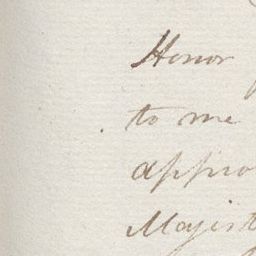 Honor
to me
appro
Majist